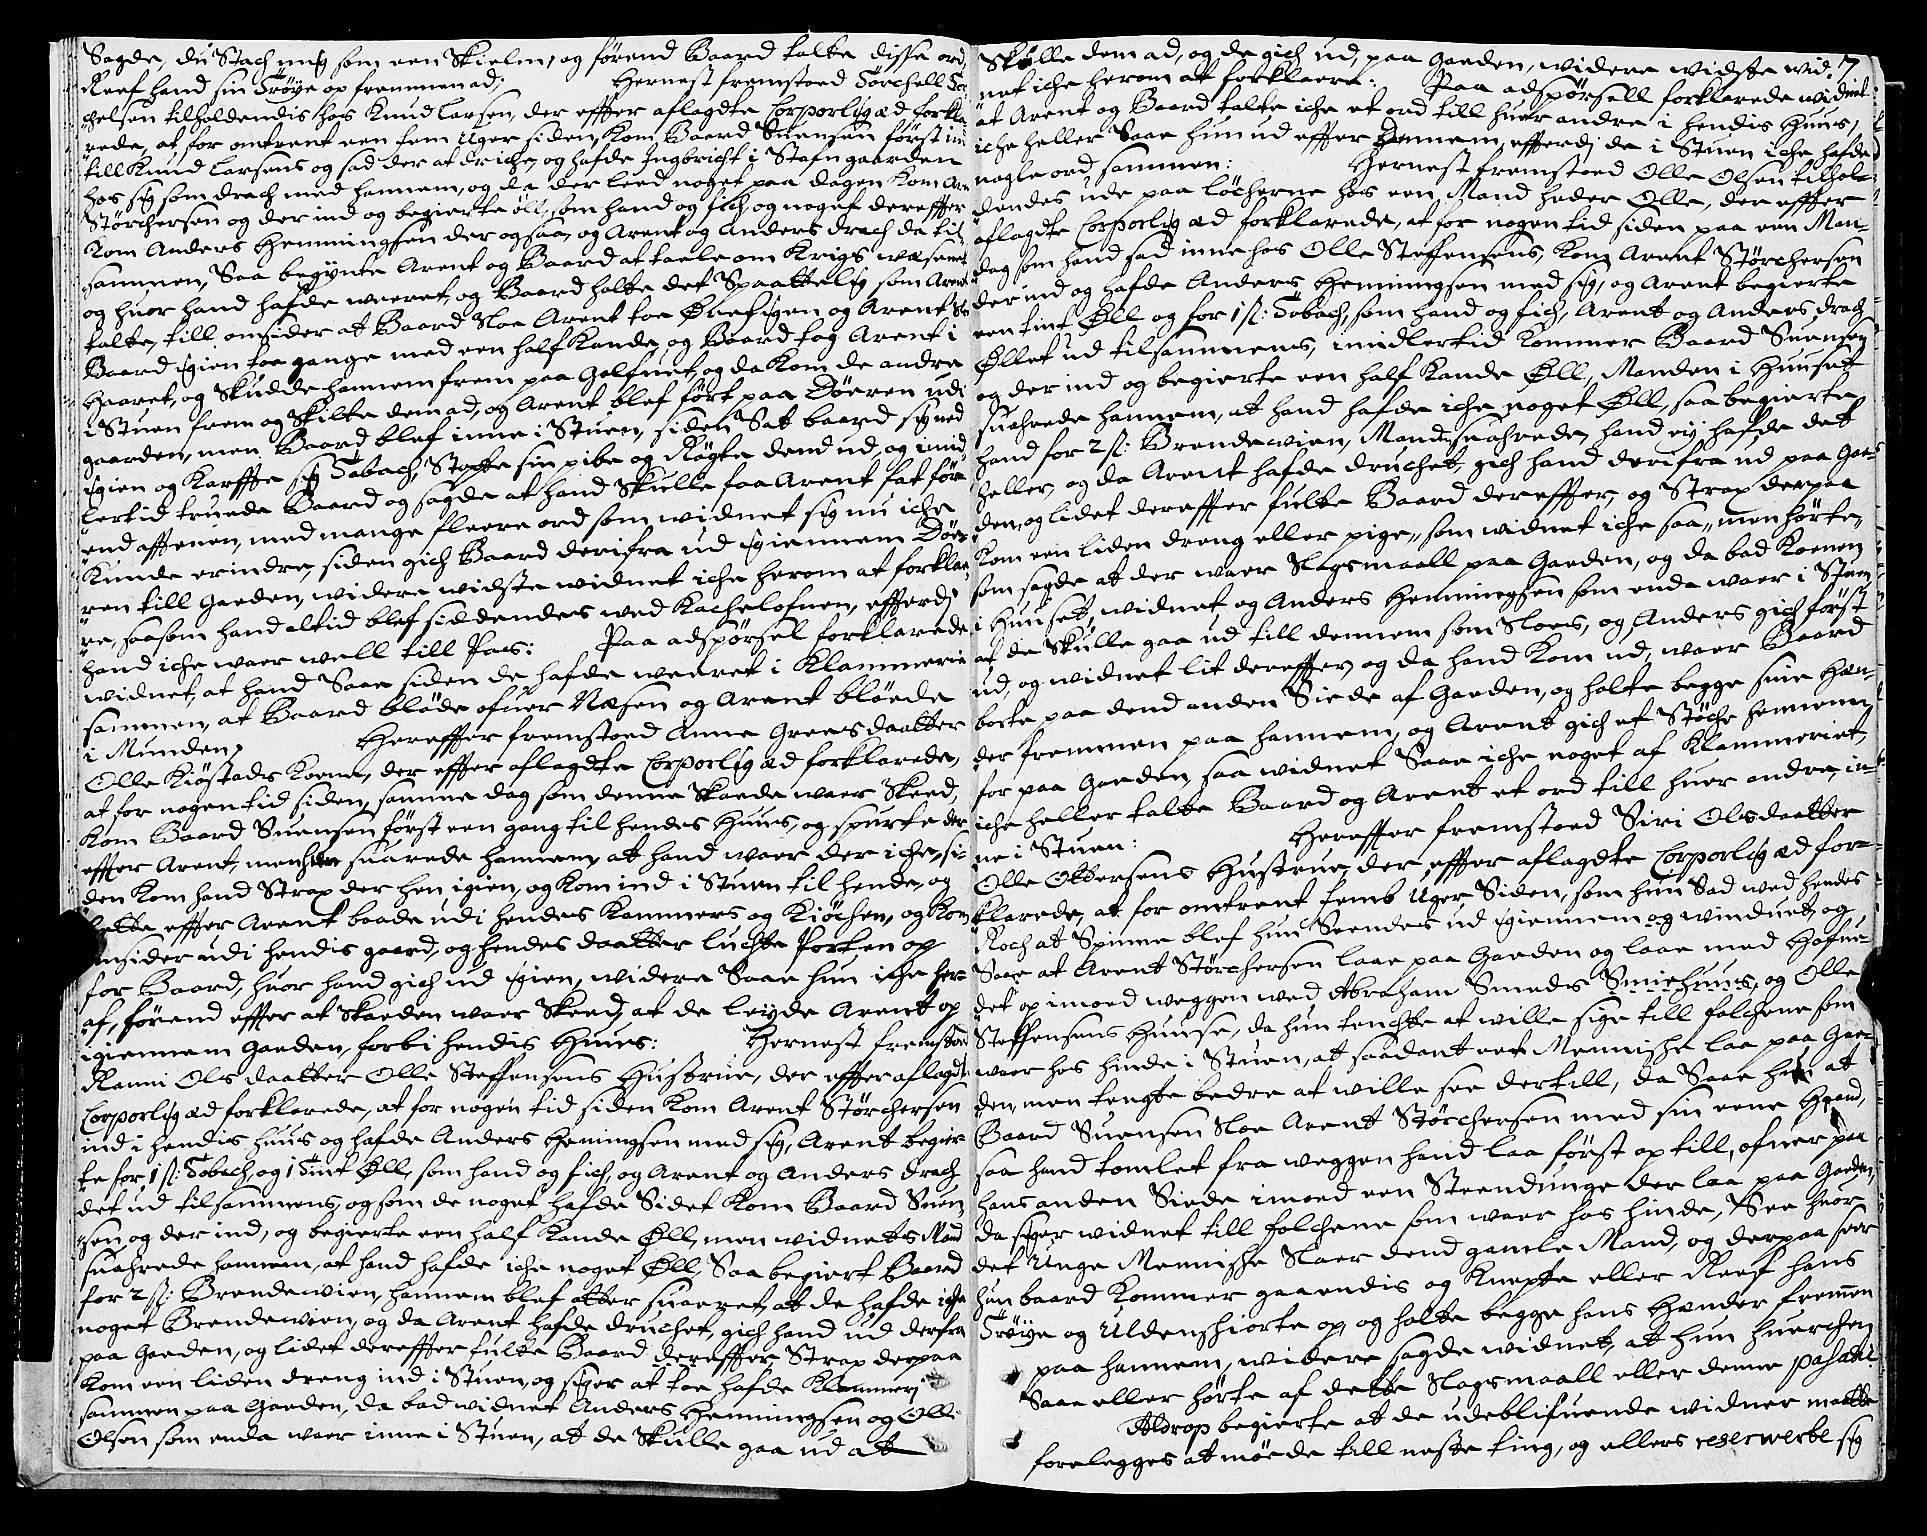 Sagde, du Stach mig som een Skielm, og förend Baard talte disse ord,
Reef hand sin Tröye op fremmen ad; Hernest fremstoed Torchell Tor
chelsen tilholdendis hos Knud Larsen, der effter aflagdte Corporlig æd forkla
rede, at for omtrent een fem Uger siden, Kom Baard Suensen först ind
till Knud Larsens og sad der at driche, og hafde Ingbricht i Stafngaarden
hos sig som drach med hannem, og da der leed noget paa dagen Kom Are
Störchersen og der ind og begierte öll, som hand og fich, og noget dereffter
Kom Anders Hemmingsen der ogsaa, og Arent og Anders drach da til
sammen, Saa begynte Arent og Baard at taele om Krigs wæsenet
og huor hand hafde weret, og Baard holte det Spaattelig som Arent
talte, till omsider at Baard Sloe Arent toe Örefigen og Arent Slo
Baard igien toe gange med een half Kande, og Baard tog Arent i
Haaret, og Skudde hannem frem paa Golfuet, og da Kom de andre
i Stuen frem og Skilte dem ad, og Arent blef fört paa Döeren udi
gaarden, men Baard blef inne i Stuen, siden Sat baard sig ned
igien og Karffte sig Tobach, Stopte sin pibe og Rögte dend ud, og imid
lertid truede Baard og sagde at hand Skulle faa Arent fat för
end afftenen, med mange fleere ord som widnet sig nu iche
Kunde erindre, siden gich Baard derifra ud igiennem Döe
ren till Gaarden, widere widste widnet iche herom at forklae
re, saasom hand altid blef siddendes wed Kachelofnen, efferdj
hand iche waer well till Pas: Paa adspörsel forklarede
widnet, at hand Saae siden de hafde weeret i Klammerie
sammen, at Baard blöde ofuer Næsen og Arent blöede
i Munden, Hereffter fremstoed Anne Greesdaatter
Olle Kiöstads Koene, der effter aflagdte Corporlig æd forklarede,
at for nogen tid siden, samme dag som denne Skaede waer Skeed,
Kom Baard Suensen först een gang til hendes Huus, og spurte der
effter Arent, men hun suarede hannem, at hand waer der iche, si
den Kom hand Strax der hen igien, og Kom ind i Stuen til hende, og
leette effter Arent baade udi hendes Kammers og Kiöchen, og Kom
omsider udi hendis gaard, og hendes daatter luchte Porten op
for Baard, huor hand gich ud igien, widere Saae hun iche her
af, förend effter at Skaeden waer Skeed, at de leyde Arent op
igiennem Gaeden, forbi hendis Huus: Hernest fremstoed
Ranni Olsdaatter Olle Steffensens Hustrue, der effter aflagdt
Corporlig æd forklarede, at for nogen tid siden Kom Arent Störchersen
ind i hendis huus og hafde Anders Hemingsen med sig, Arent begier
te for 1 sl: Tobach, og 1 Tint Öll, som hand og fich, og Arent og Anders drach
det ud tilsammens, og som de noget hafde Sidet Kom Baard Suen
sen og der ind, og begierte een half Kande Öll, men widnets Mand
suahrede hannem, at hand hafde iche noget Öll, Saa begiert Baard
for 2 sl: Brendewien, hannem blef atter suaret, at de hafde iche
noget Brendewien, og da Arent hafde druchet, gich hand ud derfra
paa Gaeden, og lidet dereffter fulte Baard dereffter, Strax derpaa
Kom een liden dreng ind i Stuen, og siger at toe hafde Klammerj
sammen paa Gaeden, da bad widnet Anders Hemmingsen og Olle
Olsen som enda waer inne i Stuen, at de Skulle gaa ud at
Skille dem ad, og de gich ud, paa Gaeden, widere widste wid: 7
net iche herom at forklaere: Paa adspörsell forklarede widnet
at Arent og Baard talte iche et ord till huer andre i hendis Huus,
iche heller Saae hun ud effter Hannem, efferdj de i Stuen iche hafde
nogle ord sammen: Hernest fremstoed Olle Olsen tilhol
dendes ude paa löcherne hos een Mand heder Olle, der effter
aflagdte Corporlig æd forklarede, at for nogen tid siden paa een Man
dag som hand sad inne hos Olle Steffensens, Kom Arent Störchersen
der ind og hafde Anders Hemmingsen med sig, og Arent begierte
een tint Öll og for 1 sl: Tobach, som hand og fich, Arent og Anders drach
Öllet ud tilsammens, imidlertid Kommer Baard Suensen
og der ind og begierte een half Kande Öll, Manden i Huuset
suahrede hannem, at hand hafde iche noget Öll, saa begierte
hand for 2 sl: Brendewien, Manden suahrede, hand ey hafde det
heller, og da Arent hafde druchet, gich hand derifra ud paa Gae
den, og lidet dereffter fulte Baard dereffter, og Strax derpaa
Kom een liden dreng eller pige, som widnet iche saa, men hörte,
som sagde at der waer Slagsmaall paa Gaeden, og da bad Koenen
i Huuset, widnet og Anders Hemmingsen som enda waer i Stuen
at de Skulle gaa ud till dennem som Sloes, og Anders gich först
ud, og widnet lit dereffter, og da hand Kom ud, waer Baard
borte paa dend anden Siede af Gaeden, og holte begge sine Hæn
der fremmen paa hannem, og Arent gich et Støche hennem
for paa Gaeden, saa widnet Saae iche noget af Klammeriet,
iche heller talte Baard og Arent et ord till huer andre in
ne i Stuen: Hereffter fremstoed Siri Olsdaatter
Olle Ottersens Hustrue, der effter aflagdte Corporlig æd for
klarede, at for omtrent femb Uger Siden, som hun Sad wed hendes
Roch at Spinne blef hun Seendes ud igiennem og winduet, og
Saae at Arent Störchersen laae paa Gaeden og laae med Hofue
det op imoed weggen wed Abraham Smeds Smiehuus, og Olle
Steffensens Huuse, da hun tenchte at wille sige till folchene som
waer hos hinde i Stuen, at saadant eet Menniske laa paa Gae
den, men tengte bedre at wille see dertill, da Saae hun at
Baard Suensen Sloe Arent Störchersen med sin eene Haand,
saa hand tomlet fra weggen hand laa först op till, ofuer paa
hans anden Siede imoed een Steendunge der laa paa Gaeden,
da siger widnet till folchene som waer hos hinde, See huor
det Unge Menniske Slaer dend gamle Mand, og derpaa seer
hun baard Kommer gaaendis og Knepte eller Reef hans
Tröye og Uldenskiorte op, og holte begge hans Hænder fremen
paa hannem, widere sagde widnet, at hun huerchen
Saae eller hörte af dette Slagsmaall eller denne pasasie
Aldrop begierte at de udeblifuende widner maatte
forelegges at möede till neste ting, og ellers reserwerte sig